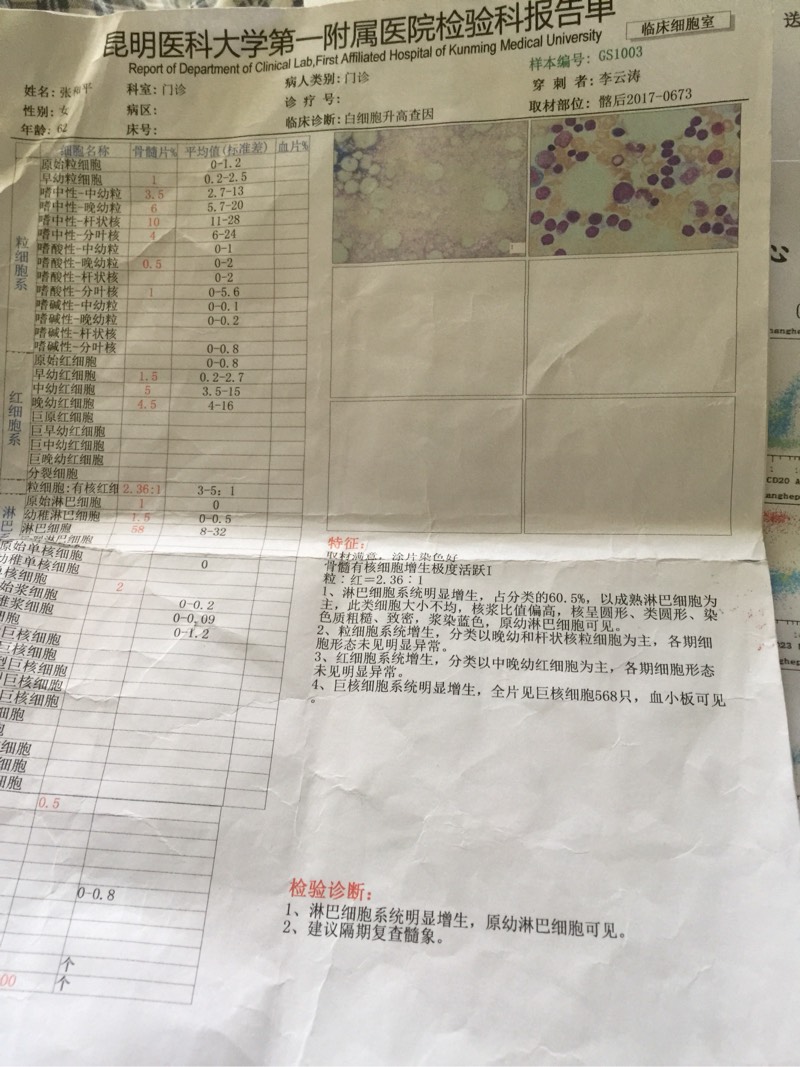 昆明医科大学第一附属医院检验科报告单
Report of Department of Clinical Lab,First Affiliated Hospital of Kunming Medical University
临床细胞室
样本编号: GS1003
姓名: 张 平 科室: 门诊 病人类别: 门诊 穿 刺 者: 李云涛
性别: 女 病区: 诊 疗 号: 取材部位: 髂后2017-0673
年龄: 62 床号: 临床诊断: 白细胞升高查因
细胞名称 骨髓片% 平均值(标准差) 血片%
粒细胞系
原始粒细胞 0-1.2
早幼粒细胞 1 0.2-2.5
嗜中性-中幼粒 3.5 2.7-13
嗜中性-晚幼粒 6 5.7-20
嗜中性-杆状核 10 11-28
嗜中性-分叶核 4 6-24
嗜酸性-中幼粒 0-1
嗜酸性-晚幼粒 0.5 0-2
嗜酸性-杆状核 0-2
嗜酸性-分叶核 1 0-5.6
嗜碱性-中幼粒 0-0.1
嗜碱性-晚幼粒 0-0.2
嗜碱性-杆状核
嗜碱性-分叶核 0-0.8
红细胞系
原始红细胞 0-0.8
早幼红细胞 1.5 0.2-2.7
中幼红细胞 5 3.5-15
晚幼红细胞 4.5 4-16
巨原红细胞
巨早幼红细胞
巨中幼红细胞
巨晚幼红细胞
分裂细胞
粒细胞:有核红细 2.36:1 3-5: 1
淋巴
原始淋巴细胞 1 0
幼稚淋巴细胞 1.5 0-0.5
淋巴细胞 58 8-32
原始单核细胞
幼稚单核细胞 0
单核细胞
始浆细胞 2
稚浆细胞 0-0.2
浆细胞 0-0.09
巨核细胞 0-1.2
巨核细胞
型巨核细胞
型巨核细胞
巨核细胞
细胞
细胞
细胞
细胞
0.5
0-0.8
个
00 个
特征:
取材满意，涂片染色好
骨髓有核细胞增生极度活跃I
粒：红＝2.36：1
1、淋巴细胞系统明显增生，占分类的60.5%，以成熟淋巴细胞为
主，此类细胞大小不均，核浆比值偏高，核呈圆形、类圆形、染
色质粗糙、致密，浆染蓝色，原幼淋巴细胞可见。
2、粒细胞系统增生，分类以晚幼和杆状核粒细胞为主，各期细
胞形态未见明显异常。
3、红细胞系统增生，分类以中晚幼红细胞为主，各期细胞形态
未见明显异常。
4、巨核细胞系统明显增生，全片见巨核细胞568只，血小板可见
。
检验诊断:
1、淋巴细胞系统明显增生，原幼淋巴细胞可见。
2、建议隔期复查髓象。
送
心
CD20 A